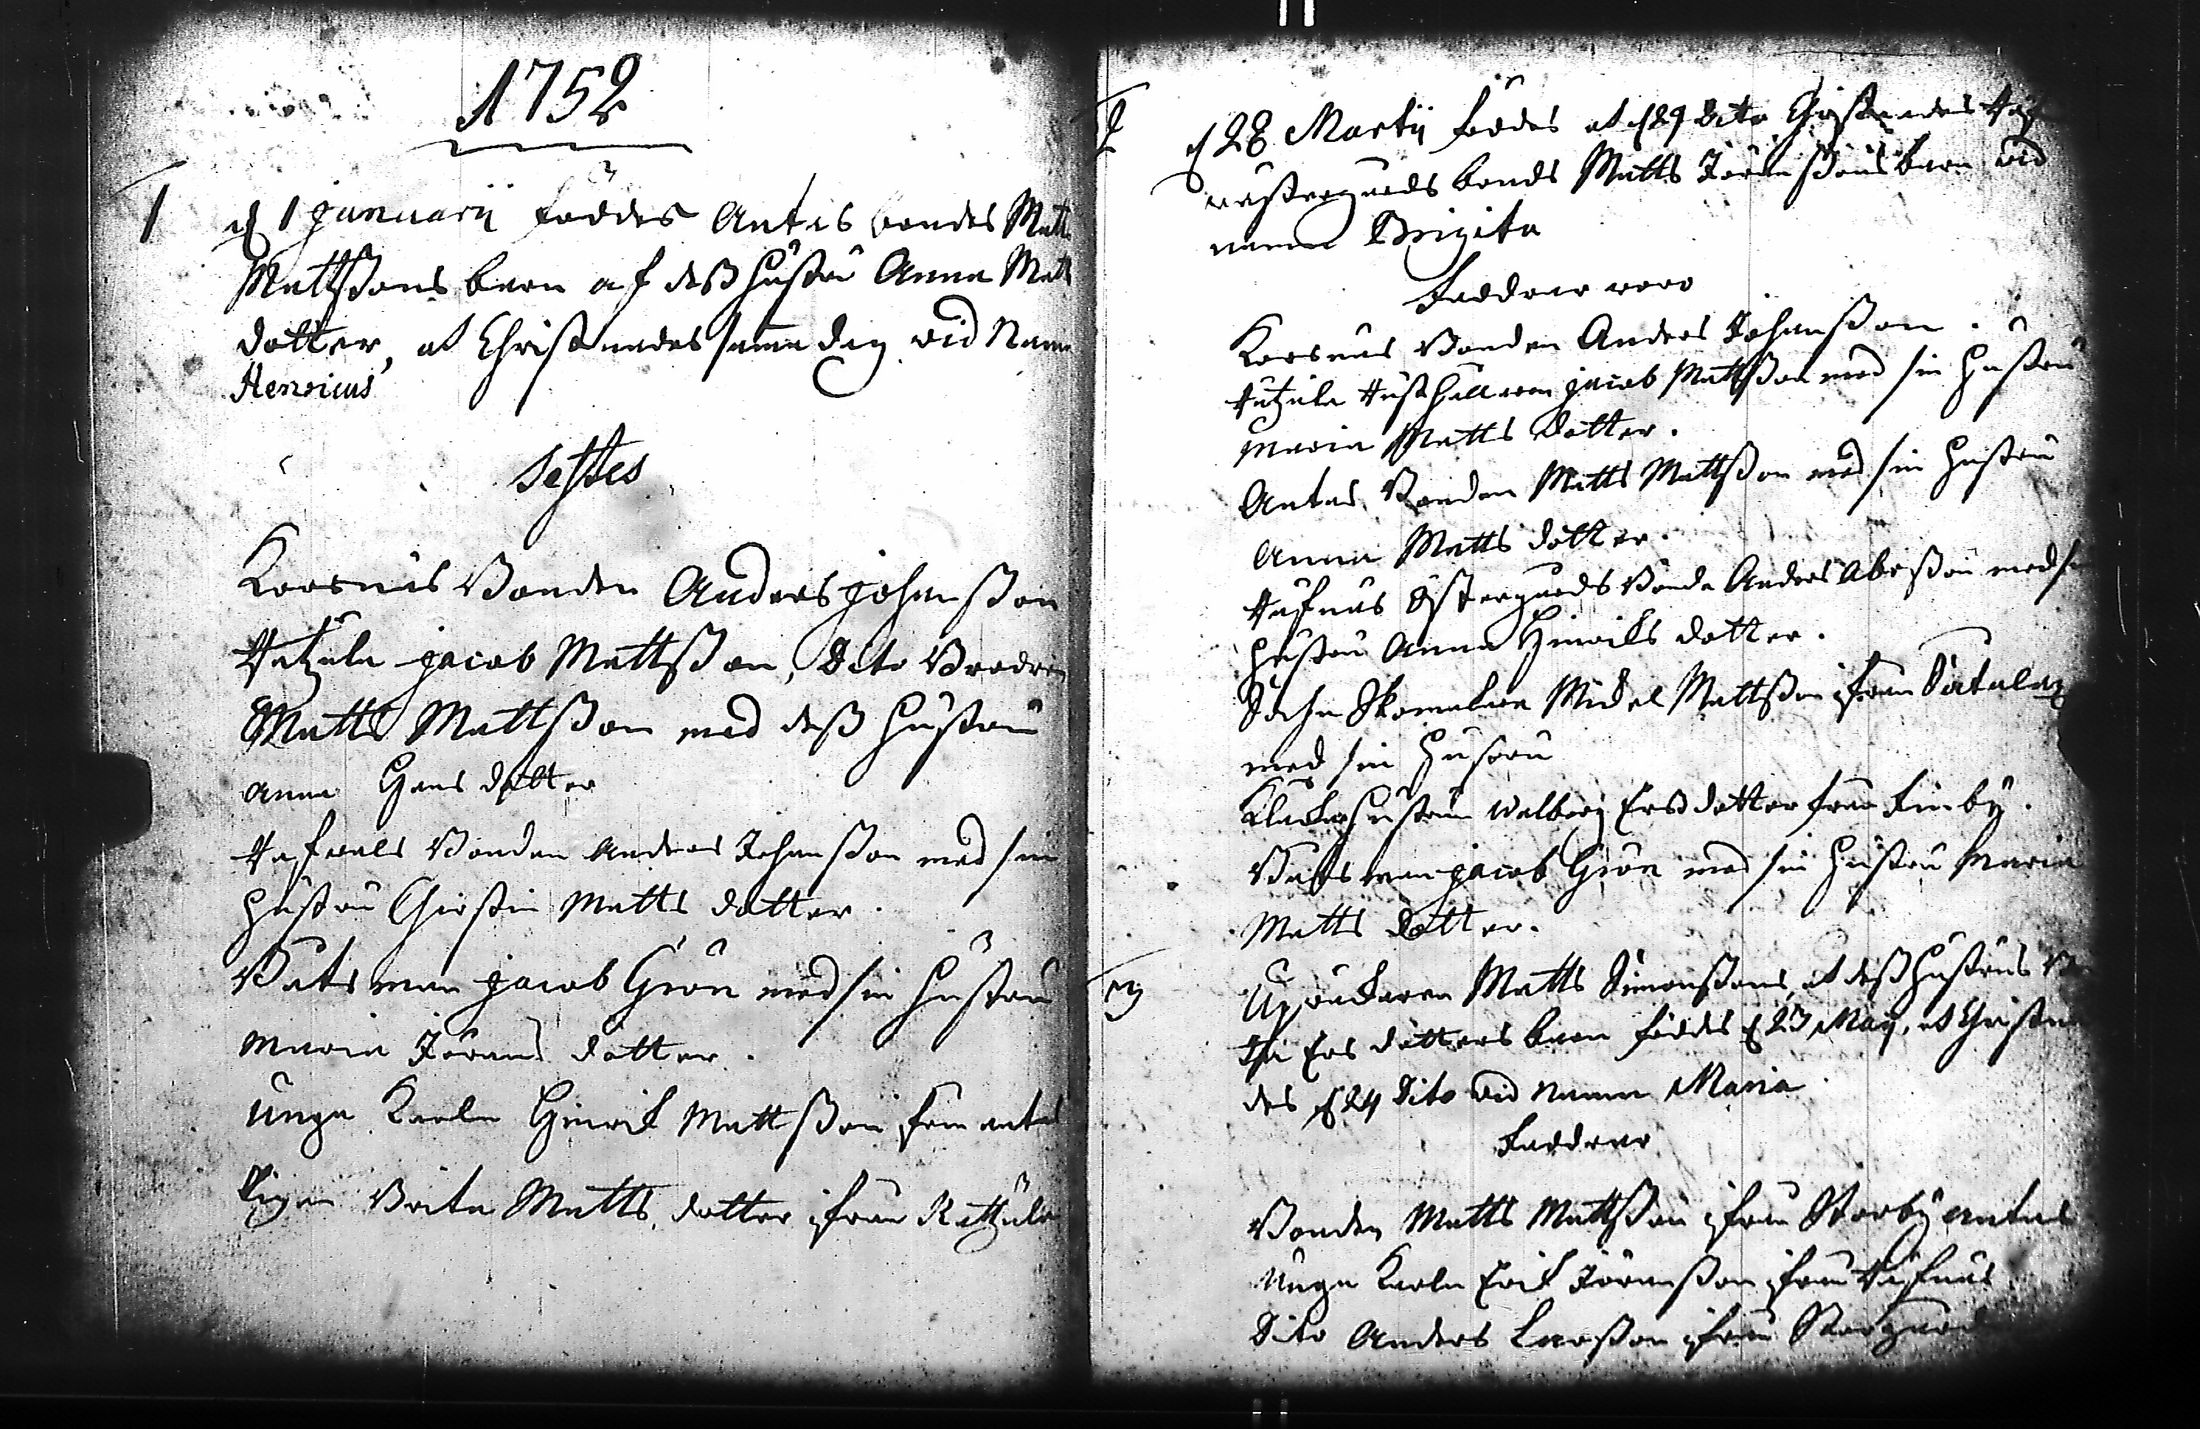 1752
1 d 1 Januarii föddes Antas bondes Matts
Mattßons barn af deß hustru Anna Matts
dotter, at Christnades samma dag vid Namn
Henricus
Testes
Korsnäs Bonden Anders Johanßon
Jacob Mattßon, Dito Brodren
Matts Mattßon med deß hustru
Anna Hans dotter
Bonden Anders Johanßon med sin
hustru Chirstin Matts dotter.
Båtsman Jacob Grön med sin hustru
Maria Jörans dotter.
Unga Karln Hinrick Mattßon från Antas
Pigan Brita Matts dotter ifrån
2 d 28 Martij föddes at d 29 Dito Christnades
westergårds bonds Matts Jöranßons barn vid
namn Brigita
Faddrar voro
Korsnäs Bonden Anders Johanßon.
Jacob Mattßon med sin Hustru
Maria Matts Dotter.
Antas Bonden Matts Mattßon med sin Hustru
Anna Matts dotter.
östergårds Bonde Anders med sin
hustru Anna Hinricks dotter.
Sochn Skomakare Mickel Mattßon ifrån
med sin Husfru
Klockarhustrun Walborg Ersdotter från Finby.
Båtsman Jacob Grön med sin Hustru Maria
Matts Dotter.
3 Matts Simonßons, at deß Hustrus
Ers dotters barn föddes d 23 Maij, at Christna
des d 24 Dito vid Namn Maria.
Faddrar
Bonden Matts Mattßon ifrån Storby Antas
Unga Karln Erik Jöranßon ifrån
Dito Anders Larßon ifrån Storgård